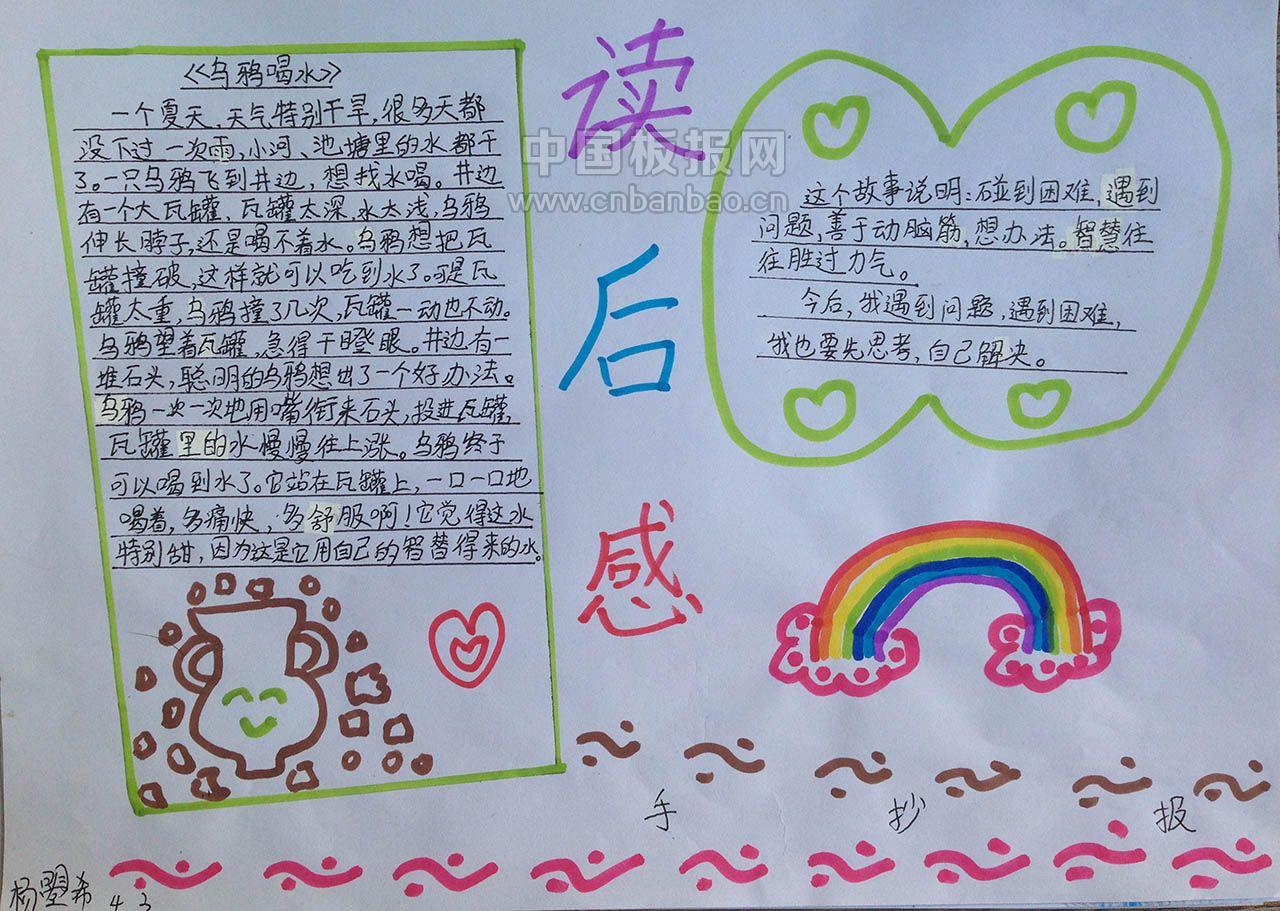 《乌鸦喝水》
一个夏天，天气特别干旱，很多天都
没下过一次雨，小河、池塘里的水都干
了。一只乌鸦飞到井边，想找水喝。井边
有一个大瓦罐，瓦罐太深，水太浅，乌鸦
伸长脖子，还是喝不着水。乌鸦想把瓦
罐撞破，这样就可以吃到水了。可是瓦
罐太重，乌鸦撞了几次，瓦罐一动也不动。
乌鸦望着瓦罐，急得干瞪眼。井边有一
堆石头，聪明的乌鸦想出了一个好办法。
乌鸦一次一次地用嘴衔来石头，投进瓦罐，
瓦罐里的水慢慢往上涨。乌鸦终于
可以喝到水了。它站在瓦罐上，一口一口地
喝着，多痛快，多舒服啊！它觉得这水
特别甜，因为这是它用自己的智慧得来的水。
读
后
感
中国板报网
www.cnbanbao.cn
这个故事说明：碰到困难，遇到
问题，善于动脑筋，想办法。智慧往
往胜过力气。
今后，我遇到问题，遇到困难，
我也要先思考，自己解决。
手 抄 报
杨曌希 4.3